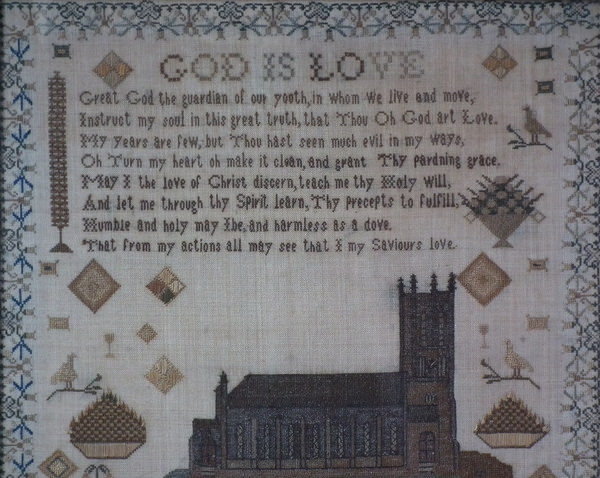 GOD IS LOVE
Great God the guardian of our youth, in whom we live and move,
Instruct my soul in this great truth, that Thou Oh God art Love.
My years are few, but Thou hast seen much evil in my ways,
Oh Turn my heart oh make it clean, and grant Thy pardning grace.
May I the love of Christ discern, teach me thy Holy will,
And let me through thy Spirit learn, Thy precepts to fulfill,
Humble and holy may Ibe, and harmless as a dove.
That from my actions all may see that I my Saviours love.